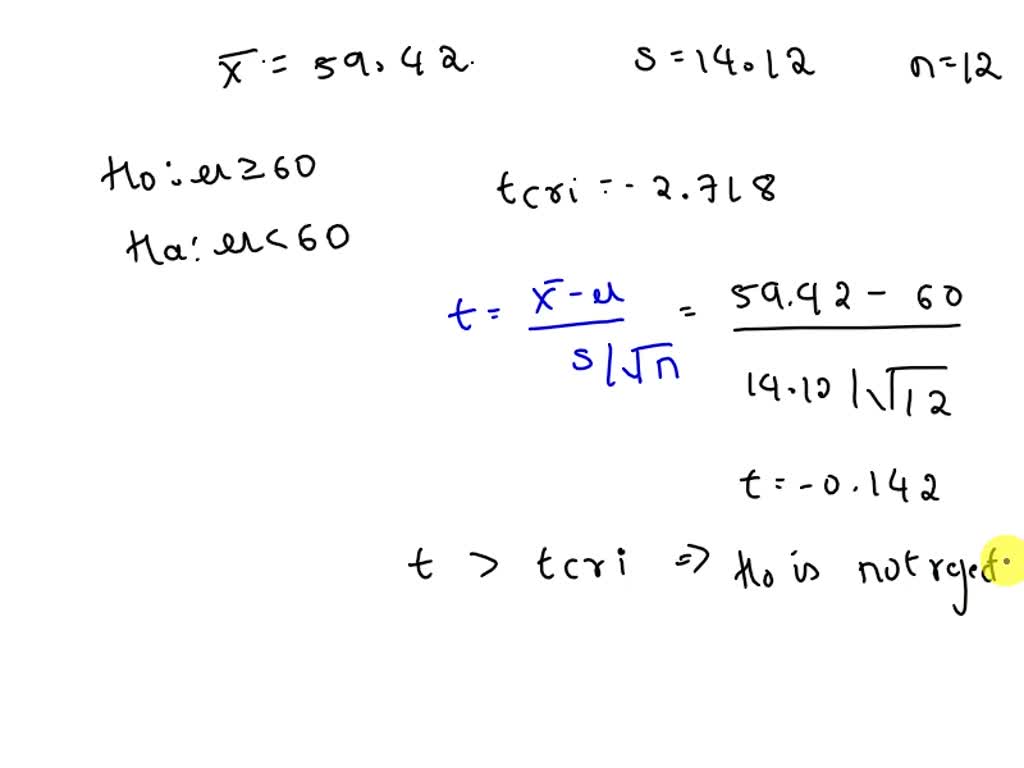 x̄ = 59.42. s = 14.12 n=12
Ho: μ ≥ 60
tcri = -2.718
Ha: μ < 60
t = x̄ - μ / s/√n = 59.42 - 60 / 14.12/√12
t = -0.142
t > tcri ⇒ Ho is not reject